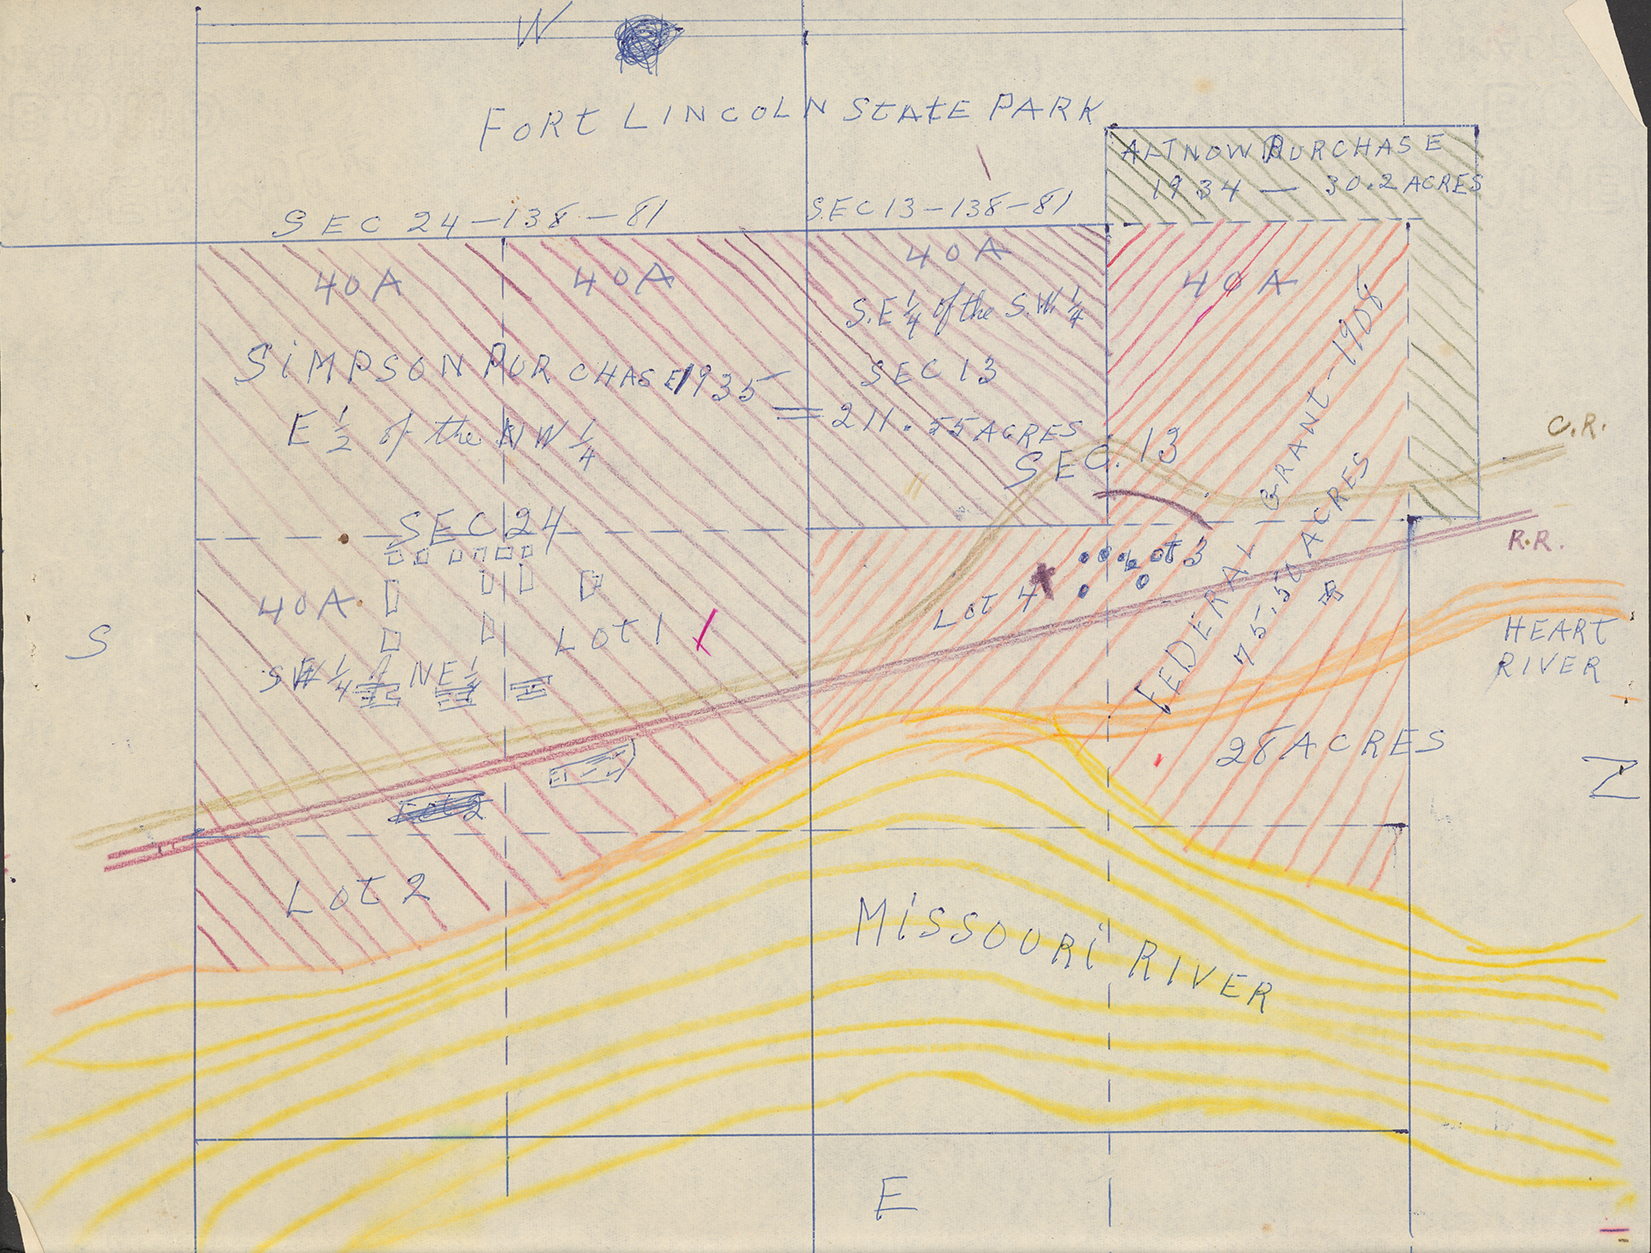 W
FORT LINCOLN STATE PARK
ALTNOW PURCHASE
1934 — 30.2 ACRES
SEC 24-138-81
SEC 13-138-81
40A
40A
40A
40A
S.E 1/4 of the S.W 1/4
SEC 13
SIMPSON PURCHASE 1935 = 211.55 ACRES
E 1/2 of the NW 1/4
SEC. 13
FEDERAL GRANT-1908
75.50 ACRES
C.R.
R.R.
SEC 24
40A
LOT 1
LOT 4
LOT 3
S
HEART
RIVER
NE 1/4
28 ACRES
N
LOT 2
LOT 2
MISSOURI RIVER
E